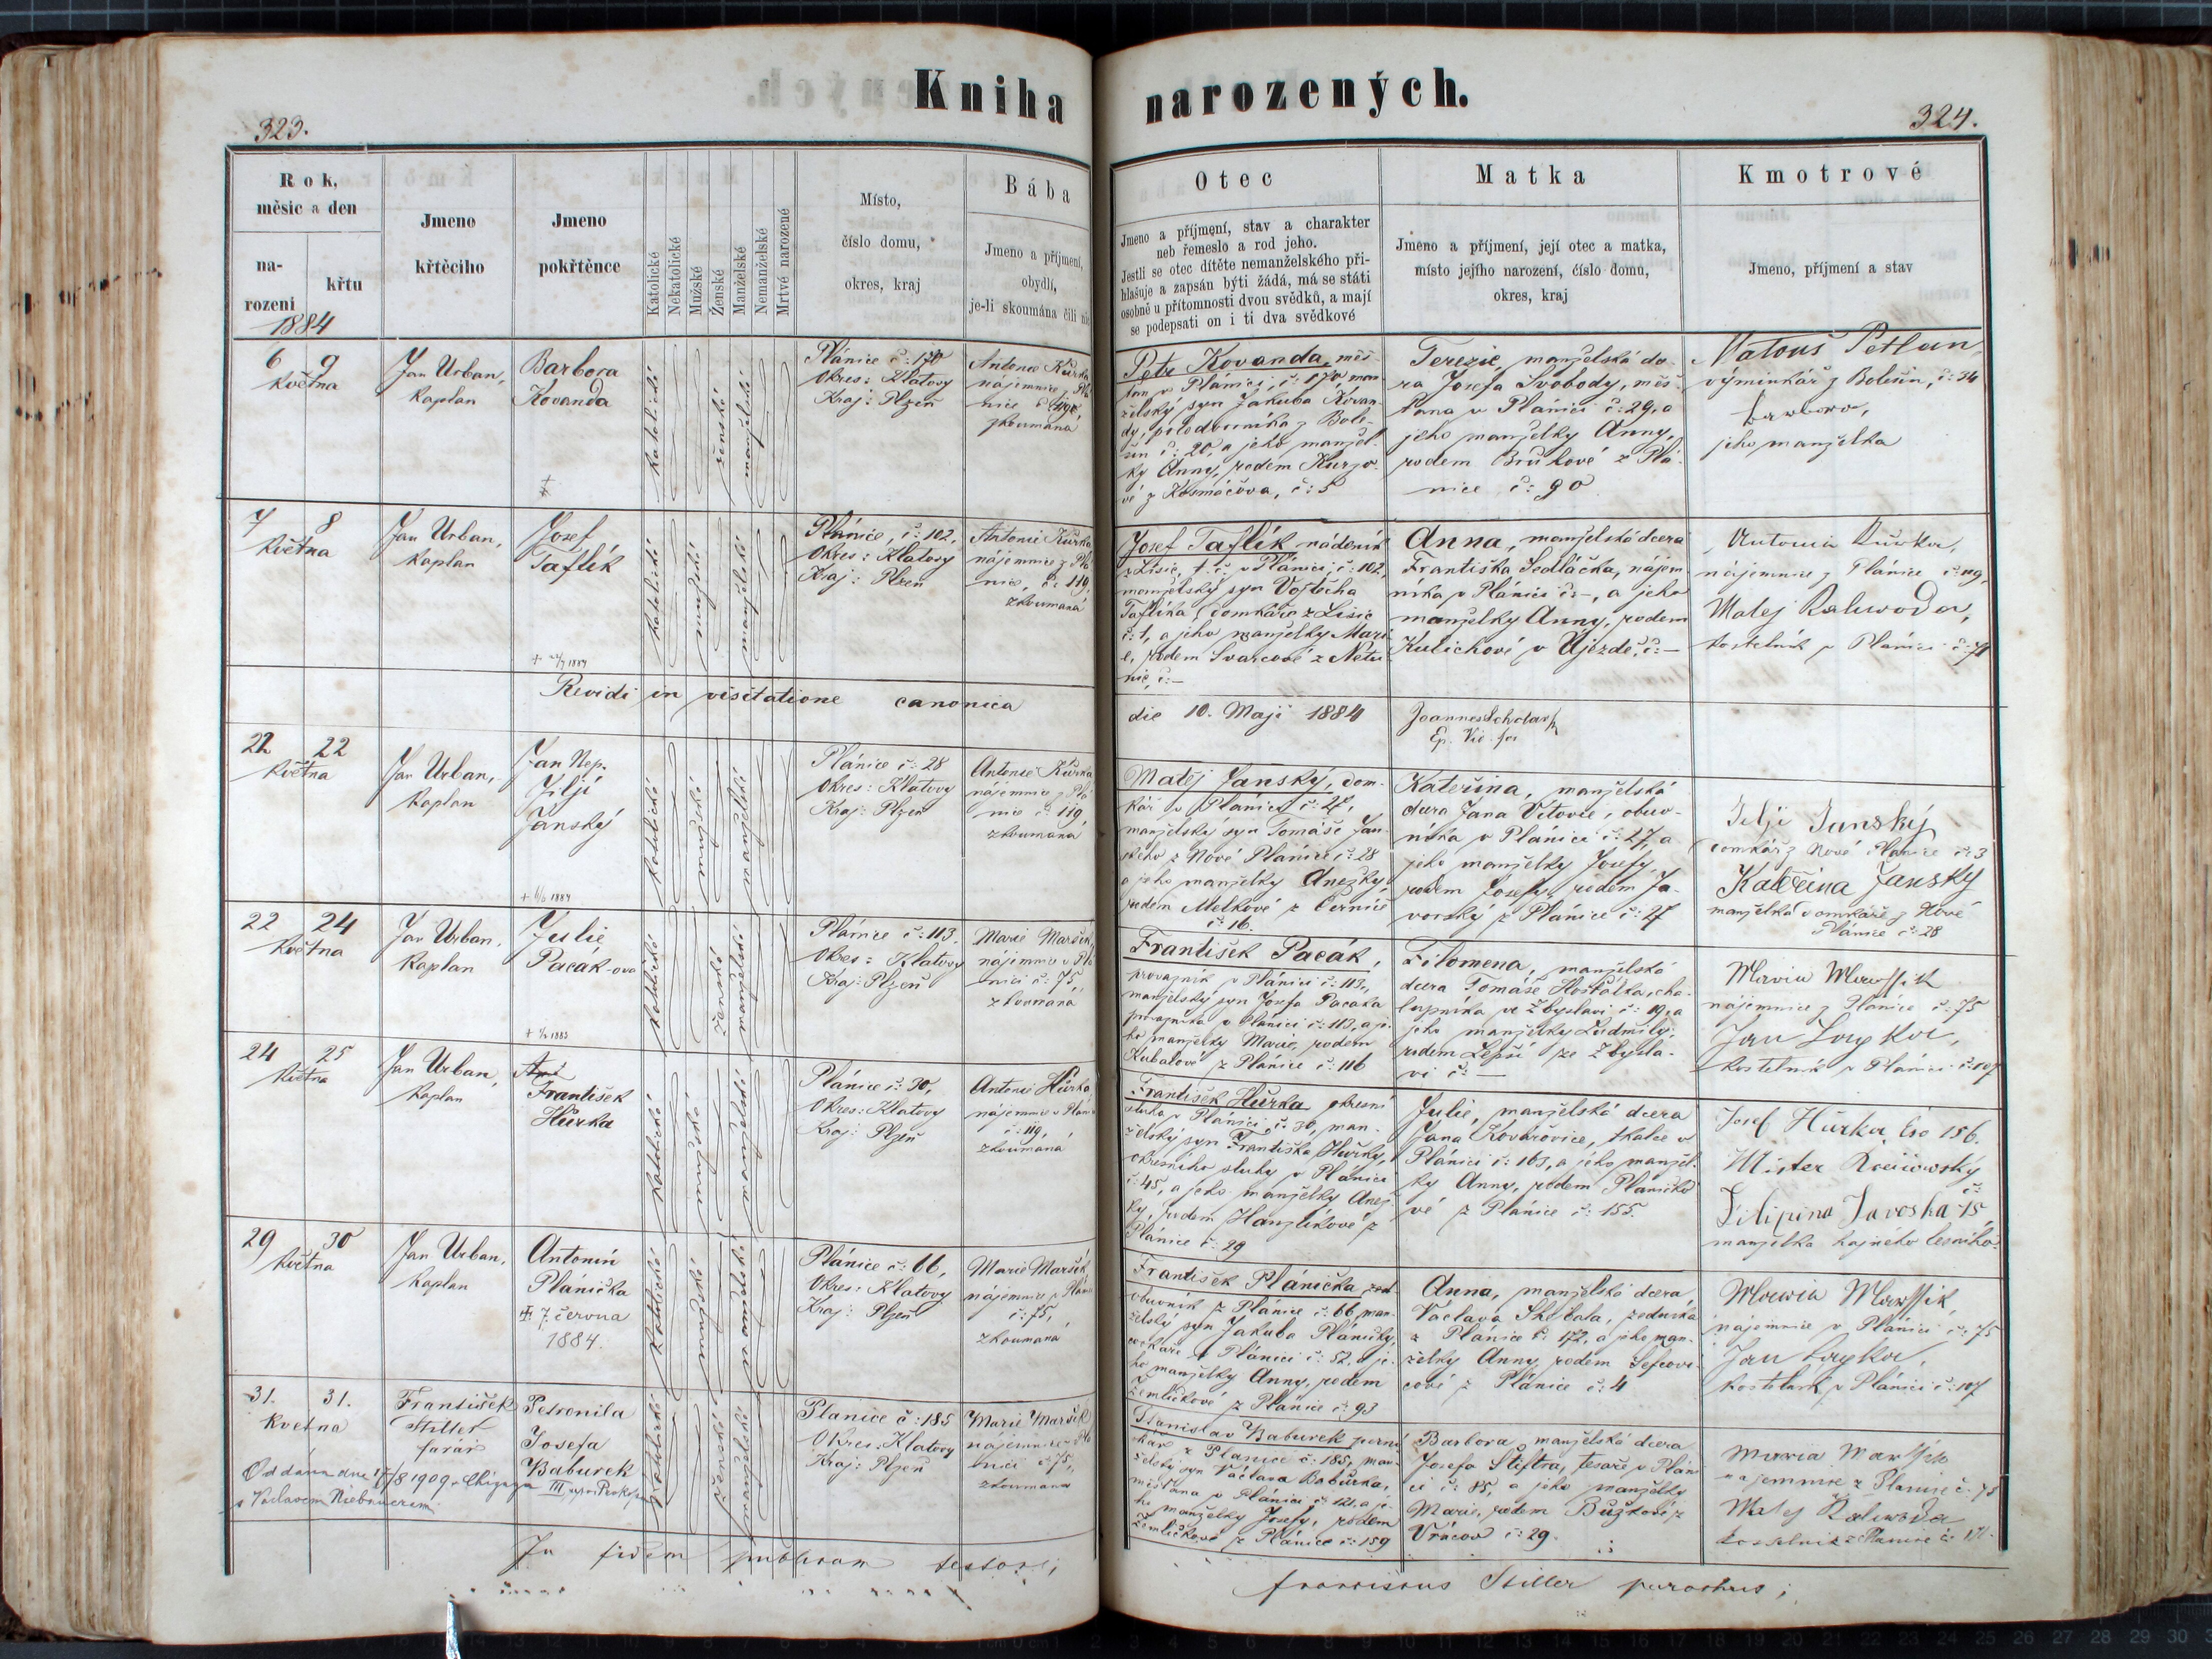 Kniha narozených.
323.
324.
Rok,
měsíc a den
na-
rození
křtu
1884
Jmeno
křtěcího
Jmeno
pokřtěnce
Katolické
Nekatolické
Mužské
Ženské
Manželské
Nemanželské
Mrtvé narozené
Místo,
číslo domu,
okres, kraj
Bába
Jmeno a příjmení,
obydlí,
je-li skoumána čili nic
Otec
Jmeno a příjmení, stav a charakter
neb řemeslo a rod jeho.
Jestli se otec dítěte nemanželského při-
hlašuje a zapsán býti žádá, má se státi
osobně u přítomnosti dvou svědků, a mají
se podepsati on i ti dva svědkové
Matka
Jmeno a příjmení, její otec a matka,
místo jejího narození, číslo domu,
okres, kraj
Kmotrové
Jmeno, příjmení a stav
6 9
Května
Jan Urban,
kaplan
Barbora
Kovanda
katolické
ženské
manželské
Plánice č: 170
Okres: Klatovy
Kraj: Plzeň
Antonie Kůrka
nájemnice, Plá
nice č: 119,
zkoumána
Petr Kovanda, měš-
ťan v Plánici, č: 170, man
želský syn Jakuba Kovan-
dy, polodvorníka z Bole-
šin č: 20, a jeho manžel-
ky Anny, rodem Kurzo-
vé z Kosmáčova, č: 5
Terezie, manželská dce-
ra Josefa Svobody, měš-
ťana v Plánici č: 29, a
jeho manželky Anny,
rodem Brůhové z Plá-
nice č: 90
Matouš Petlan,
výminkář z Bolešin, č: 34
Barbora,
jeho manželka
7 8
Května
Jan Urban,
kaplan
Josef
Taflík
katolické
mužské
manželské
Plánice, č: 102,
Okres: Klatovy
Kraj: Plzeň
Antonie Kůrka
nájemnice z Plá
nice, č: 119,
zkoumána
Josef Taflík nádeník
z Lišic, t. č. v Plánici, č: 102,
manželský syn Vojtěcha
Taflíka, domkáře z Lišic
č: 1, a jeho manželky Mari
e, rodem Švarcové z Netu
nic, č: –
Anna, manželská dcera
Františka Sedláčka, nájem
níka v Plánici č: –, a jeho
manželky Anny, rodem
Kulichové v Újezdě, č: –
Antonia Kůrka,
nájemnice z Plánice č: 119,
Matej Kalivoda,
kostelník v Plánici č: 71
Revidi in visitatione canonica
die 10. Maji 1884
22 22
Května
Jan Urban,
kaplan
Jan Nep.
Jiljí
Janský
katolické
mužské
manželské
Plánice č: 28
Okres: Klatovy
Kraj: Plzeň
Antonie Kůrka
nájemnice z Plá
nice č: 119,
zkoumána
Matěj Janský, dom-
kář v Plánici č: 28,
manželský syn Tomáše Jan-
ského z Nové Plánice č: 28
a jeho manželky Anežky,
rodem Melkové z Černíč
č: 16.
Kateřina, manželská
dcera Jana Vítovce, obuv-
níka v Plánici č: 27, a
jeho manželky Josefy,
rodem Josefy, rodem Ja-
vorský z Plánice č: 27
Jilji Janský
domkář z Nové Plánice č: 3
Kateřina Janský
manželka domkáře z Nové
Plánice č: 28
22 24
Května
Jan Urban,
Kaplan
Julie
Pacák-ova
katolické
ženské
manželské
Plánice č: 113,
Okres: Klatovy
Kraj: Plzeň
Marie Maršík,
nájemnice v Plá
nici č: 75,
zkoumána
František Pacák,
provazník v Plánici č: 113,
manželský syn Josefa Pacáka
provazníka v Plánici č: 113, a je-
ho manželky Marie, rodem
Kubatové z Plánice č: 116
Filomena, manželská
dcera Tomáše Hošťálka, cha-
lupníka ve Zbyslavi č: 19, a
jeho manželky Ludmily,
rodem Lepší ze Zbysla-
vi č: –
Maria Marssik
nájemnice z Plánice č: 75
Jan Soyka,
kostelník v Plánici č: 107
24 25
Května
Jan Urban,
kaplan
František
Hůrka
katolické
mužské
manželské
Plánice č: 30,
Okres: Klatovy
Kraj: Plzeň
Antonie Hůrka
nájemnice v Plánici
č: 119,
zkoumána
František Hůrka okresní
sluha v Plánici, č: 30, man-
želský syn Františka Hůrky,
okresního sluhy v Plánici
č: 45, a jeho manželky Anež-
ky, rodem Hanzlíkové z
Plánice č: 29
Julie, manželská dcera
Jana Kovářovice, tkalce v
Plánici č: 163, a jeho manžel-
ky Anny, rodem Pláničko
vé z Plánice č: 155.
Josef Hůrka, čso 156.
Filipina Javoska č: 15
manželka hajného lesního
29 30
Května
Jan Urban,
kaplan
Antonín
Plánička
7. června
1884.
katolické
mužské
manželské
Plánice č: 66,
Okres: Klatovy
Kraj: Plzeň
Marie Maršík,
nájemnice v Plánici
č: 75,
zkoumána
František Plánička
obuvník z Plánice č: 66, man-
želský syn Jakuba Pláničky,
v Plánici č: 52, a je-
ho manželky Anny, rodem
Žemličkové z Plánice č: 93
Anna, manželská dcera
Václava Škrbala, zedníka
z Plánice č: 172, a jeho man-
želky Anny, rodem Šefcovi-
cové z Plánice č: 4
Maria Marssik,
nájemnice v Plánici č: 75
Jan Soyka,
kostelník v Plánici č: 107
31. 31.
Května
František
Stiller
farář
Petronila
Josefa
Baburek
Oddána dne 17/8 1909 v Chicagu III
s Václavem Niebauerem.
katolické
ženské
manželské
Planice č: 185
Okres: Klatovy
Kraj: Plzeň
Marie Maršík
nájemnice v Plá
nici č: 75,
zkoumána
Stanislav Baburek perní
kář z Planice č: 185, man-
želský syn Václava Babůrka,
měšťana v Plánici, č: 121, a je-
ho manželky Josefy, rodem
Žemličkové z Plánice č: 159
Barbora, manželská dcera
Josefa Štiftra, tesaře v Pláni
ci č: 85, a jeho manželky
Marie, rodem Bůžkové z
Vrhčov č: 29.
Maria Marssik
najemnice z Planice č: 75
Matej Kaliwoda
kostelnik z Planice č: 171.
In fidem publicam testor;
Franciscus Stiller parochus;